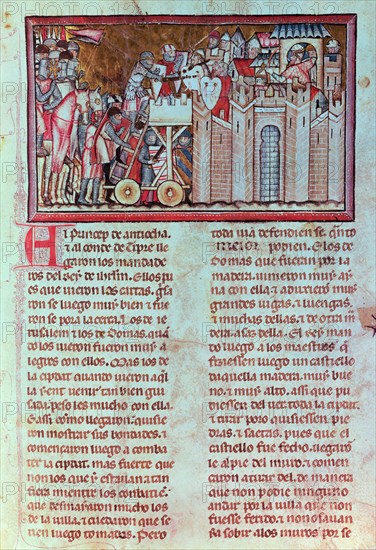 Al princep de antiocha.
et al conde de Tripre lle
garon los manda de
ros del Rey de iherusalem. Ellos pu
es que vieron las cartas. gui
saron se luego muy bien et fueron
se pora la cerca. et los de ie
rusalem et los de Domas. quan
do los vieron fueron muy a
legres con ellos. Mas los de
la cipdat quando vieron aquel
la yent venir tan bien gui
sada. peso les mucho con ella.
Essi como llegaron. quisie
ron mostrar sus bondades. et
començaron luego a comba
ter la cipdat. mas fuerte que
non los que y estavan a tan
fiera mientre los combatien.
que desmayaron mucho los
de la villa. et cuedaron que se
rien luego tomadas. Pero
toda via defendien se quanto
meior podien. Ellos de
Domas que fueran por la
madera. vinieron muy ayna
con ella et adurieron muy
grandes vigas. et luengas.
et muchas dellas. et de otra ma
dera. asaz della. El Rey man
do luego a los maestros que
fiziessen luego un castiello
daquella madera. muy bue
no. et muy alto. assi que pu
diessen del veer toda la cipdat.
et tirar por o quisiessen pie
dras. et saetas. pues que el
castiello fue fecho. llegaron
le al pie del muro. et comen
çaron atirar del. de manera
que non podie ninguno
andar por la villa que non
fuesse ferido. et non osavan
sa sobir alos muros por se